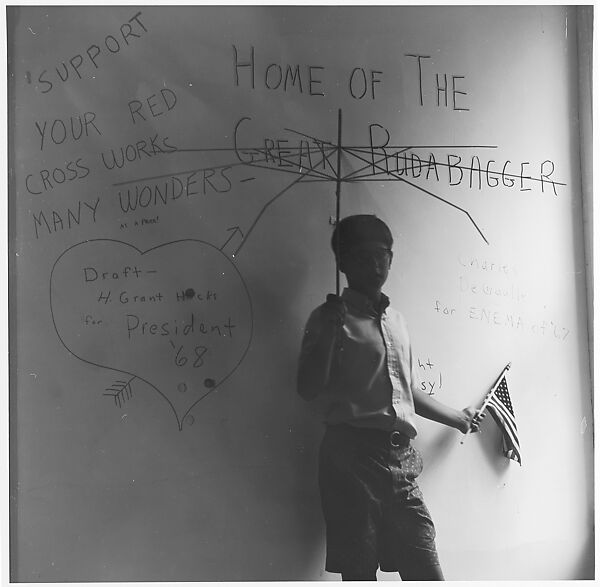 "SUPPORT
YOUR RED
CROSS WORKS
MANY WONDERS—
HOME OF THE
GREAT RUDABAGGER
Draft—
H. Grant Hicks
for President
'68
Charles
DeGaulle
for ENEMA of '67
ht
sy!